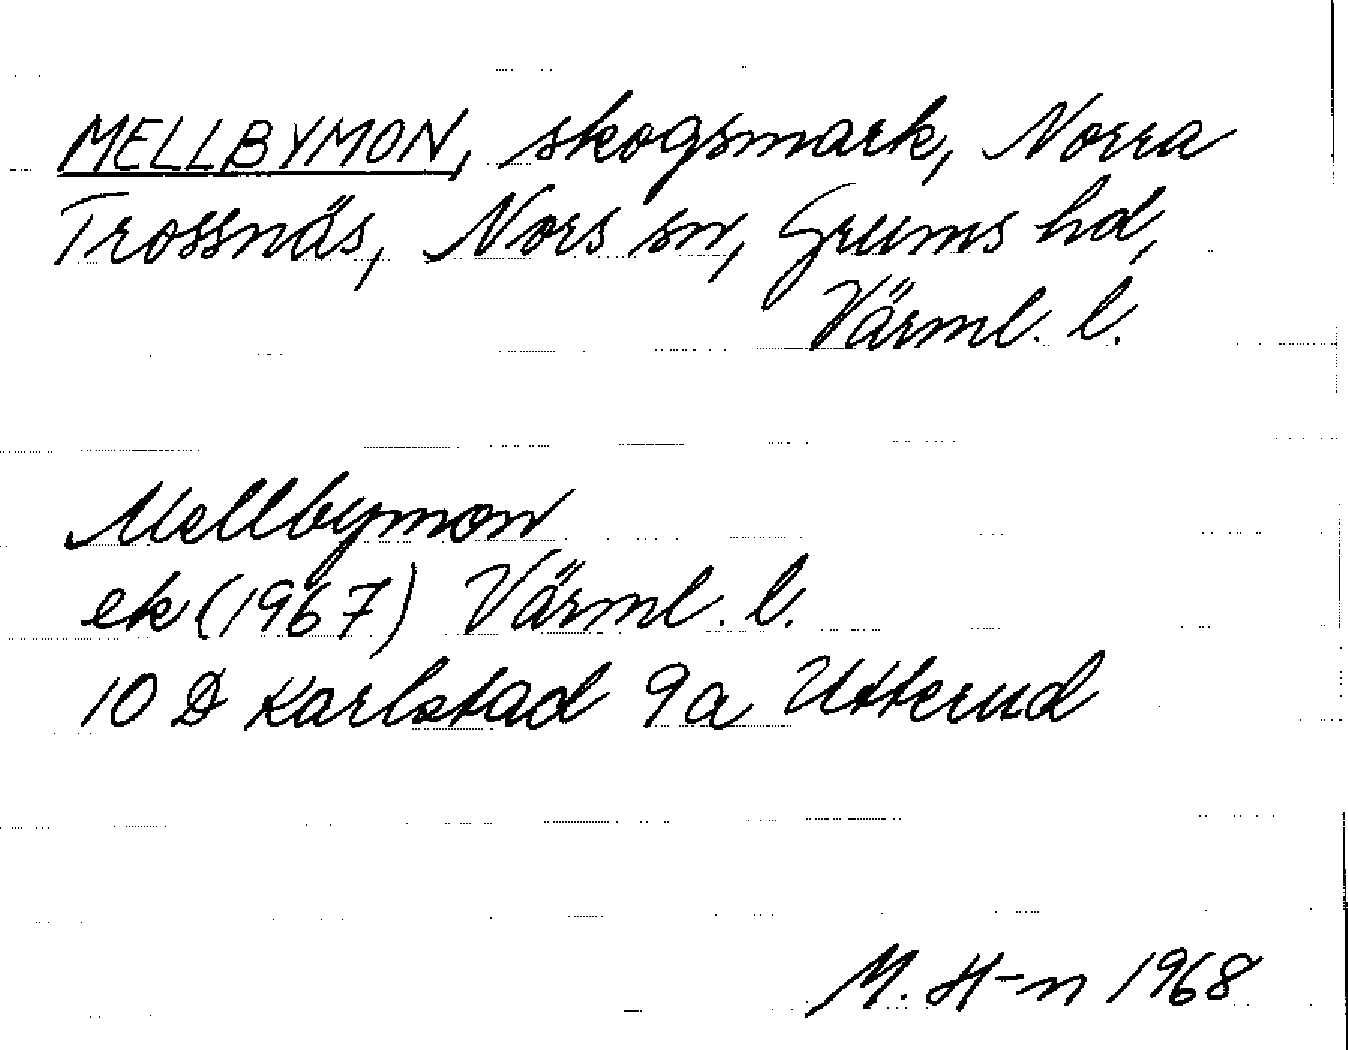 MELLBYMON, skogsmark, Norra
Trossnäs, Nors sn, Grums hd,
Värml. l.
Mellbymon
ek (1967) Värml. l.
10 D Karlstad 9a Utterud
M. H-n 1968